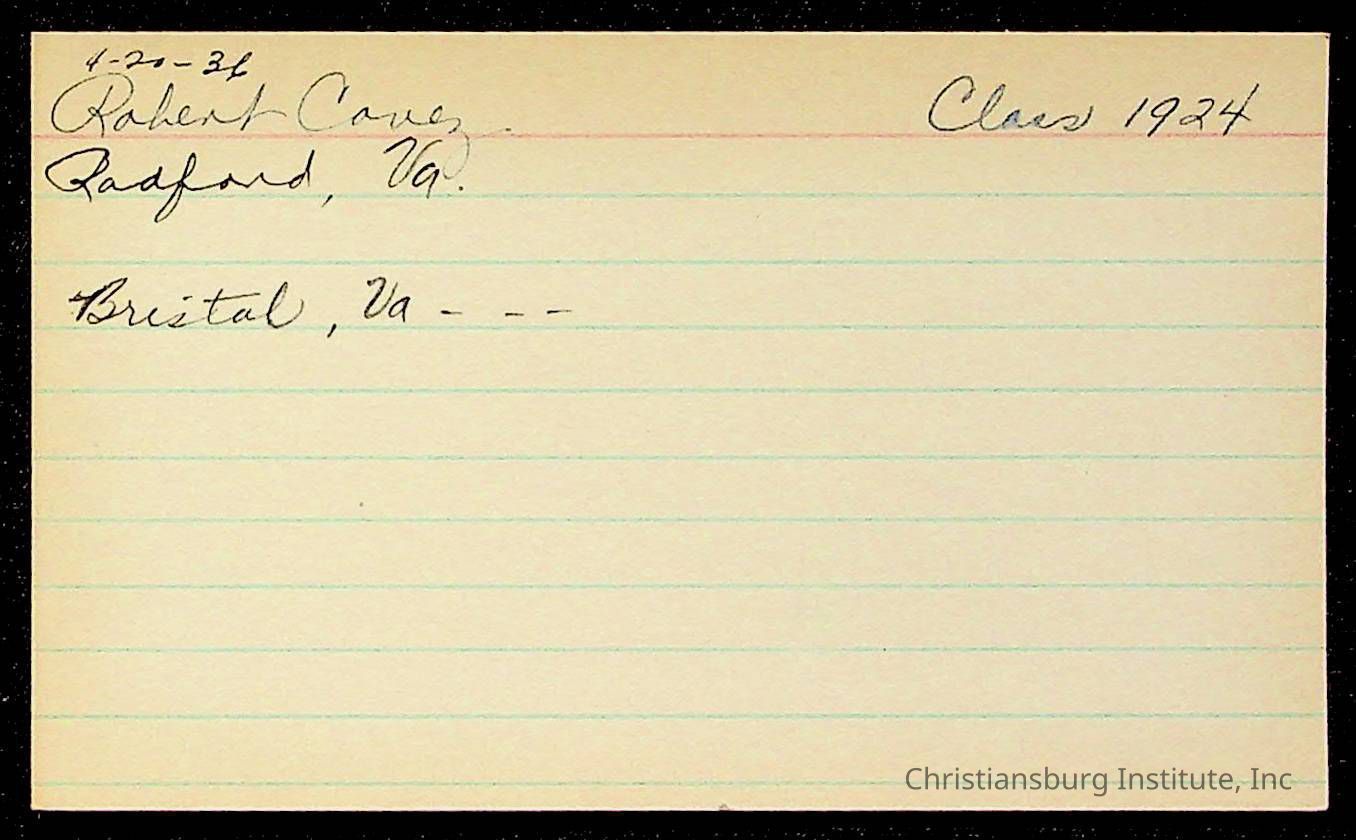 4-20-36
Robert Covez Class 1924
Radford, Va.
Bristol, Va - - -
Christiansburg Institute, Inc